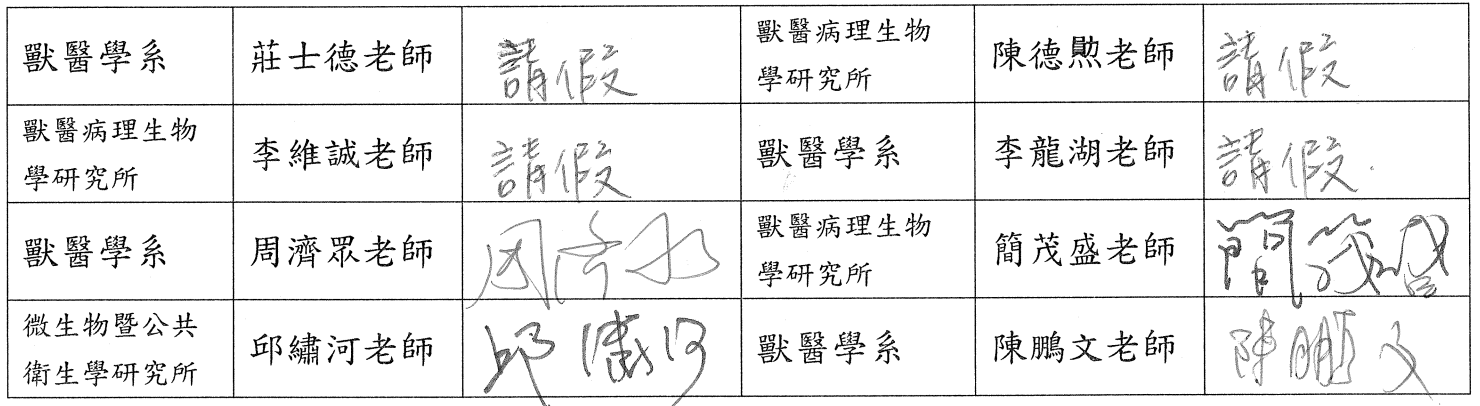 獸醫學系 莊士德老師 請假 獸醫病理生物學研究所 陳德勲老師 請假
獸醫病理生物學研究所 李維誠老師 請假 獸醫學系 李龍湖老師 請假
獸醫學系 周濟眾老師 周濟眾 獸醫病理生物學研究所 簡茂盛老師 簡茂盛
微生物暨公共衛生學研究所 邱繡河老師 邱繡河 獸醫學系 陳鵬文老師 陳鵬文